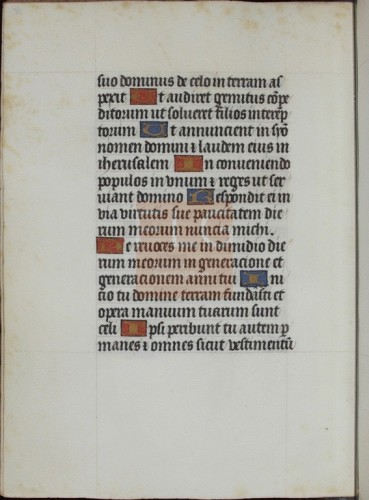 suo dominus de celo in terram as
pexit Ut audiret gemitus cōpe
ditorum ut solveret filios interēp
torum Ut annuncient in syō
nomen domini ⁊ laudem eius in
iherusalem In conveniendo
populos in vnum ⁊ reges ut ser
viant domino Respondit ei in
via virtutis sue paucitatem die
rum meorum nuncia michi.
Ne revoces me in dimidio die
rum meorum in generacione et
generacionem anni tui Ini
cio tu domine terram fundasti et
opera manuum tuarum sunt
celi Ipsi peribunt tu autem p
manes ⁊ omnes sicut vestimentū